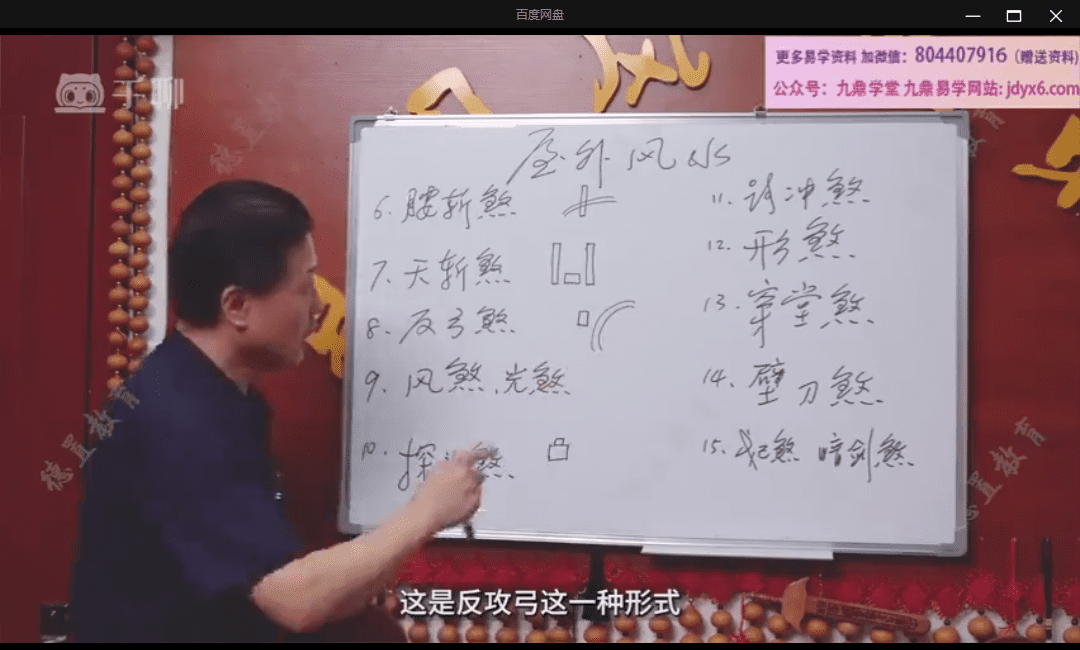 百度网盘
更多易学资料 加微信：804407916（赠送资料)
公众号：九鼎学堂 九鼎易学网站: jdyx6.com
千聊
德置教育
屋外风水
6. 腰斩煞
7. 天斩煞
8. 反弓煞
9. 风煞、光煞
10. 探 煞
11. 冲煞
12. 形煞
13. 穿堂煞
14. 壁刀煞
15. 煞 暗剑煞
德置教育
置教育
这是反攻弓这一种形式